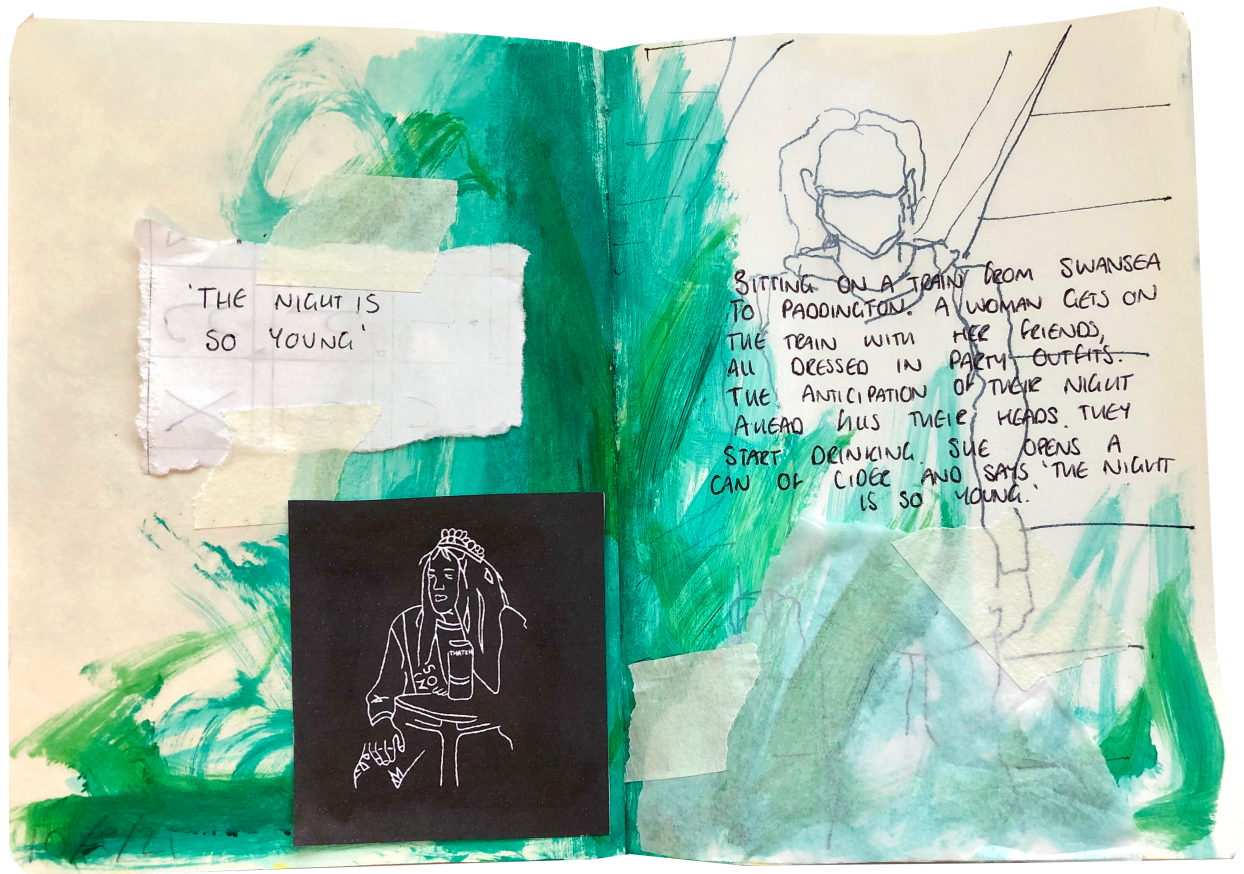 'THE NIGHT IS
SO YOUNG'
THATCH
SITTING ON A TRAIN FROM SWANSEA
TO PADDINGTON. A WOMAN GETS ON
THE TRAIN WITH HER FRIENDS,
ALL DRESSED IN PARTY OUTFITS.
THE ANTICIPATION OF THEIR NIGHT
AHEAD FILLS THEIR HEADS. THEY
START DRINKING. SHE OPENS A
CAN OF CIDER AND SAYS 'THE NIGHT
IS SO YOUNG.'